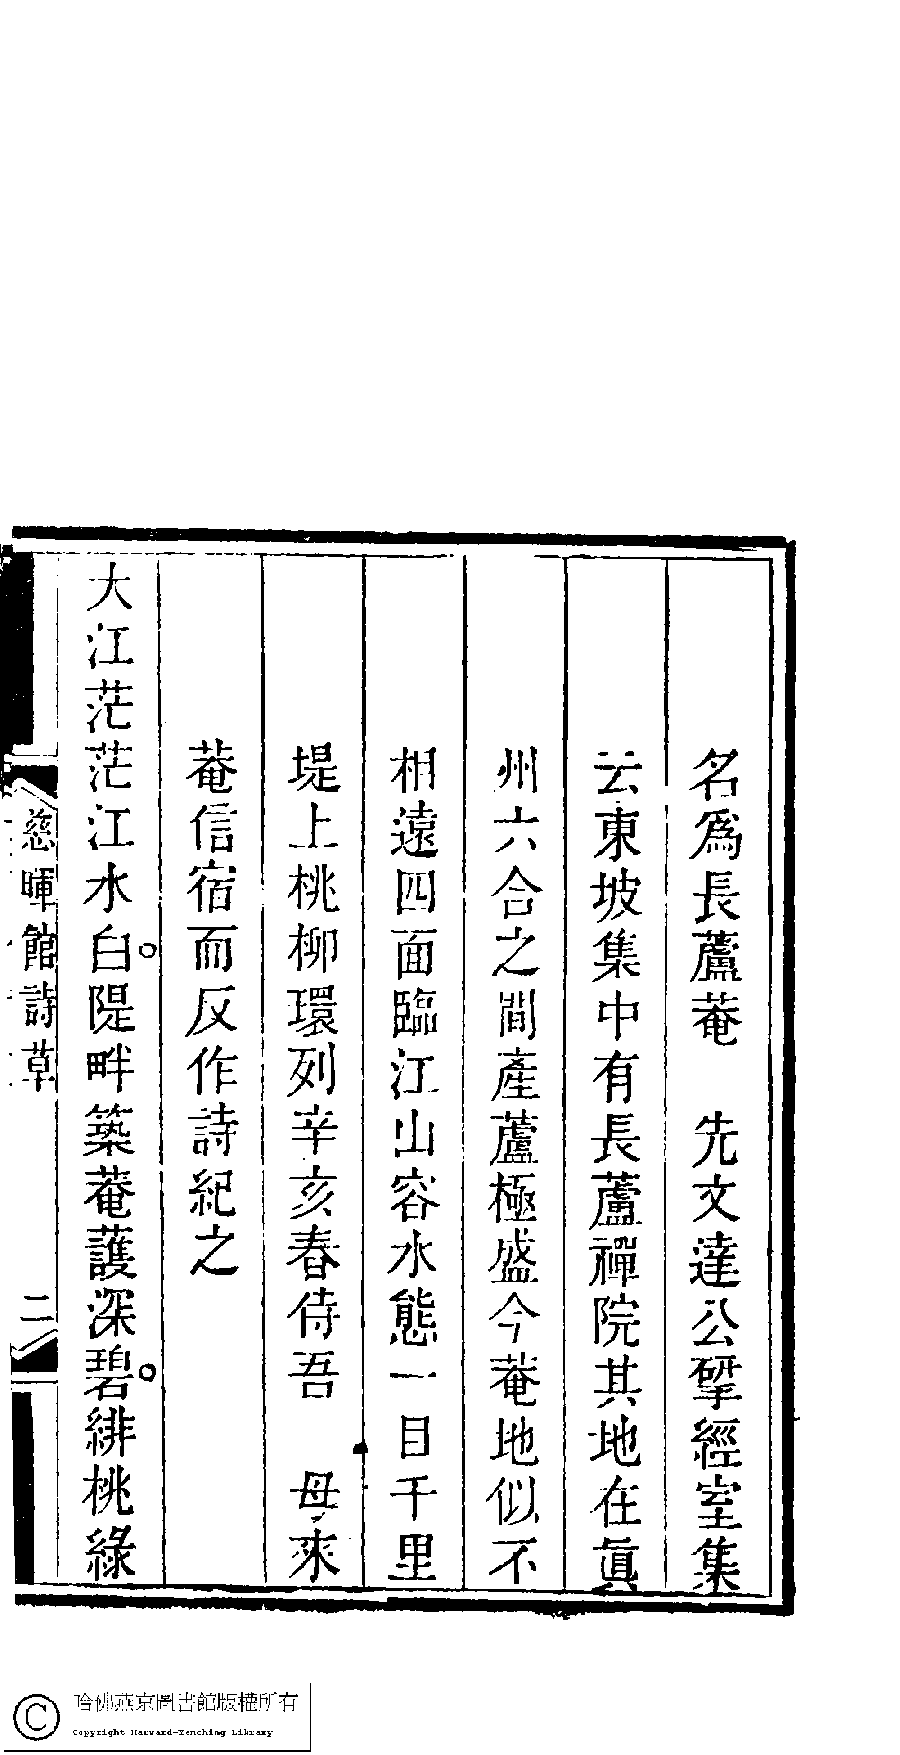 名為長蘆菴　先文達公揅經室集
云東坡集中有長蘆禪院其地在眞
州六合之間產蘆極盛今菴地似不
相遠四面臨江山容水態一目千里
堤上桃柳環列辛亥春侍吾　母來
菴信宿而反作詩紀之
大江茫茫江水白。隄畔築菴護深碧。緋桃綠
慈暉館詩草
二
哈佛燕京圖書館版權所有
Copyright Harvard-Yenching Library